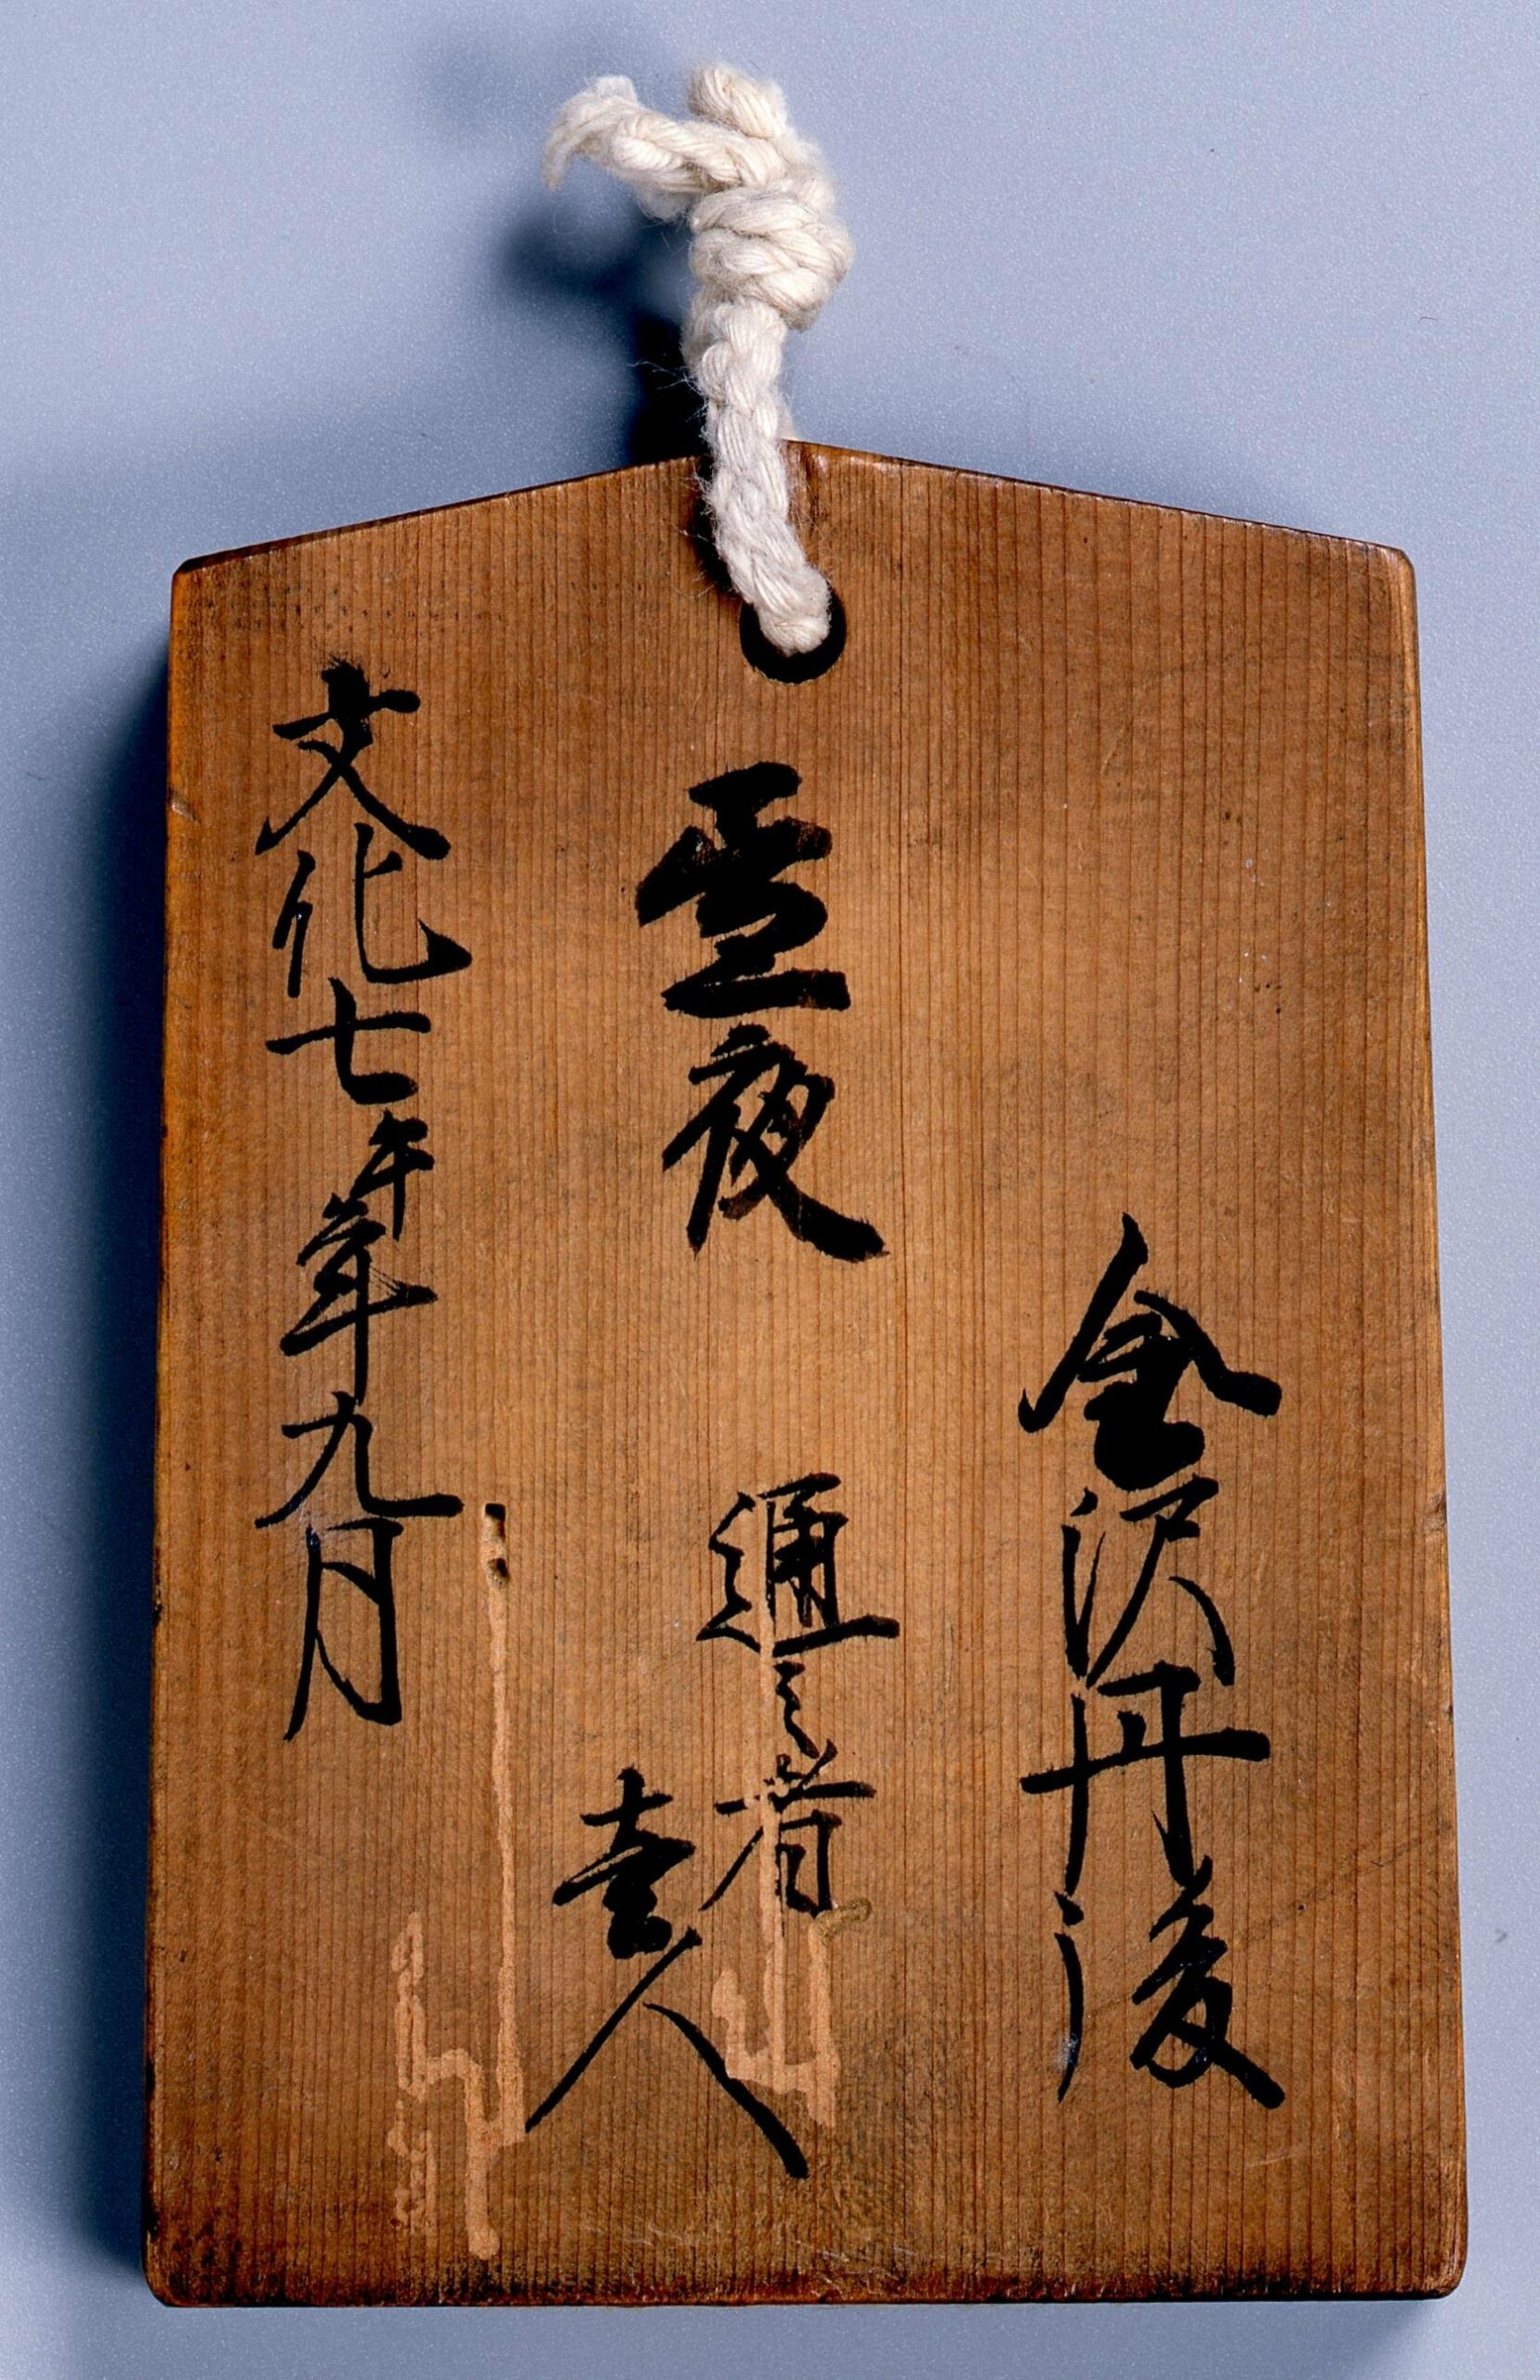 金沢丹後
昼夜　通之者
壱人
文化七午年九月